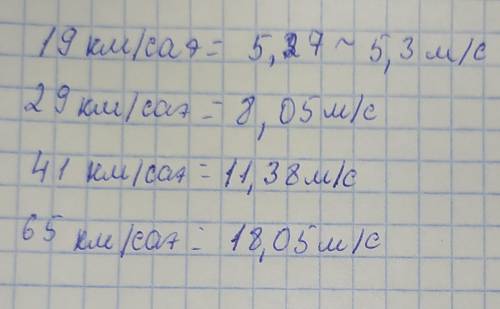 19 км/саг = 5,27 ~ 5,3 м/с
29 км/саг = 8,05 м/с
41 км/саг = 11,38 м/с
65 км/саг = 18,05 м/с